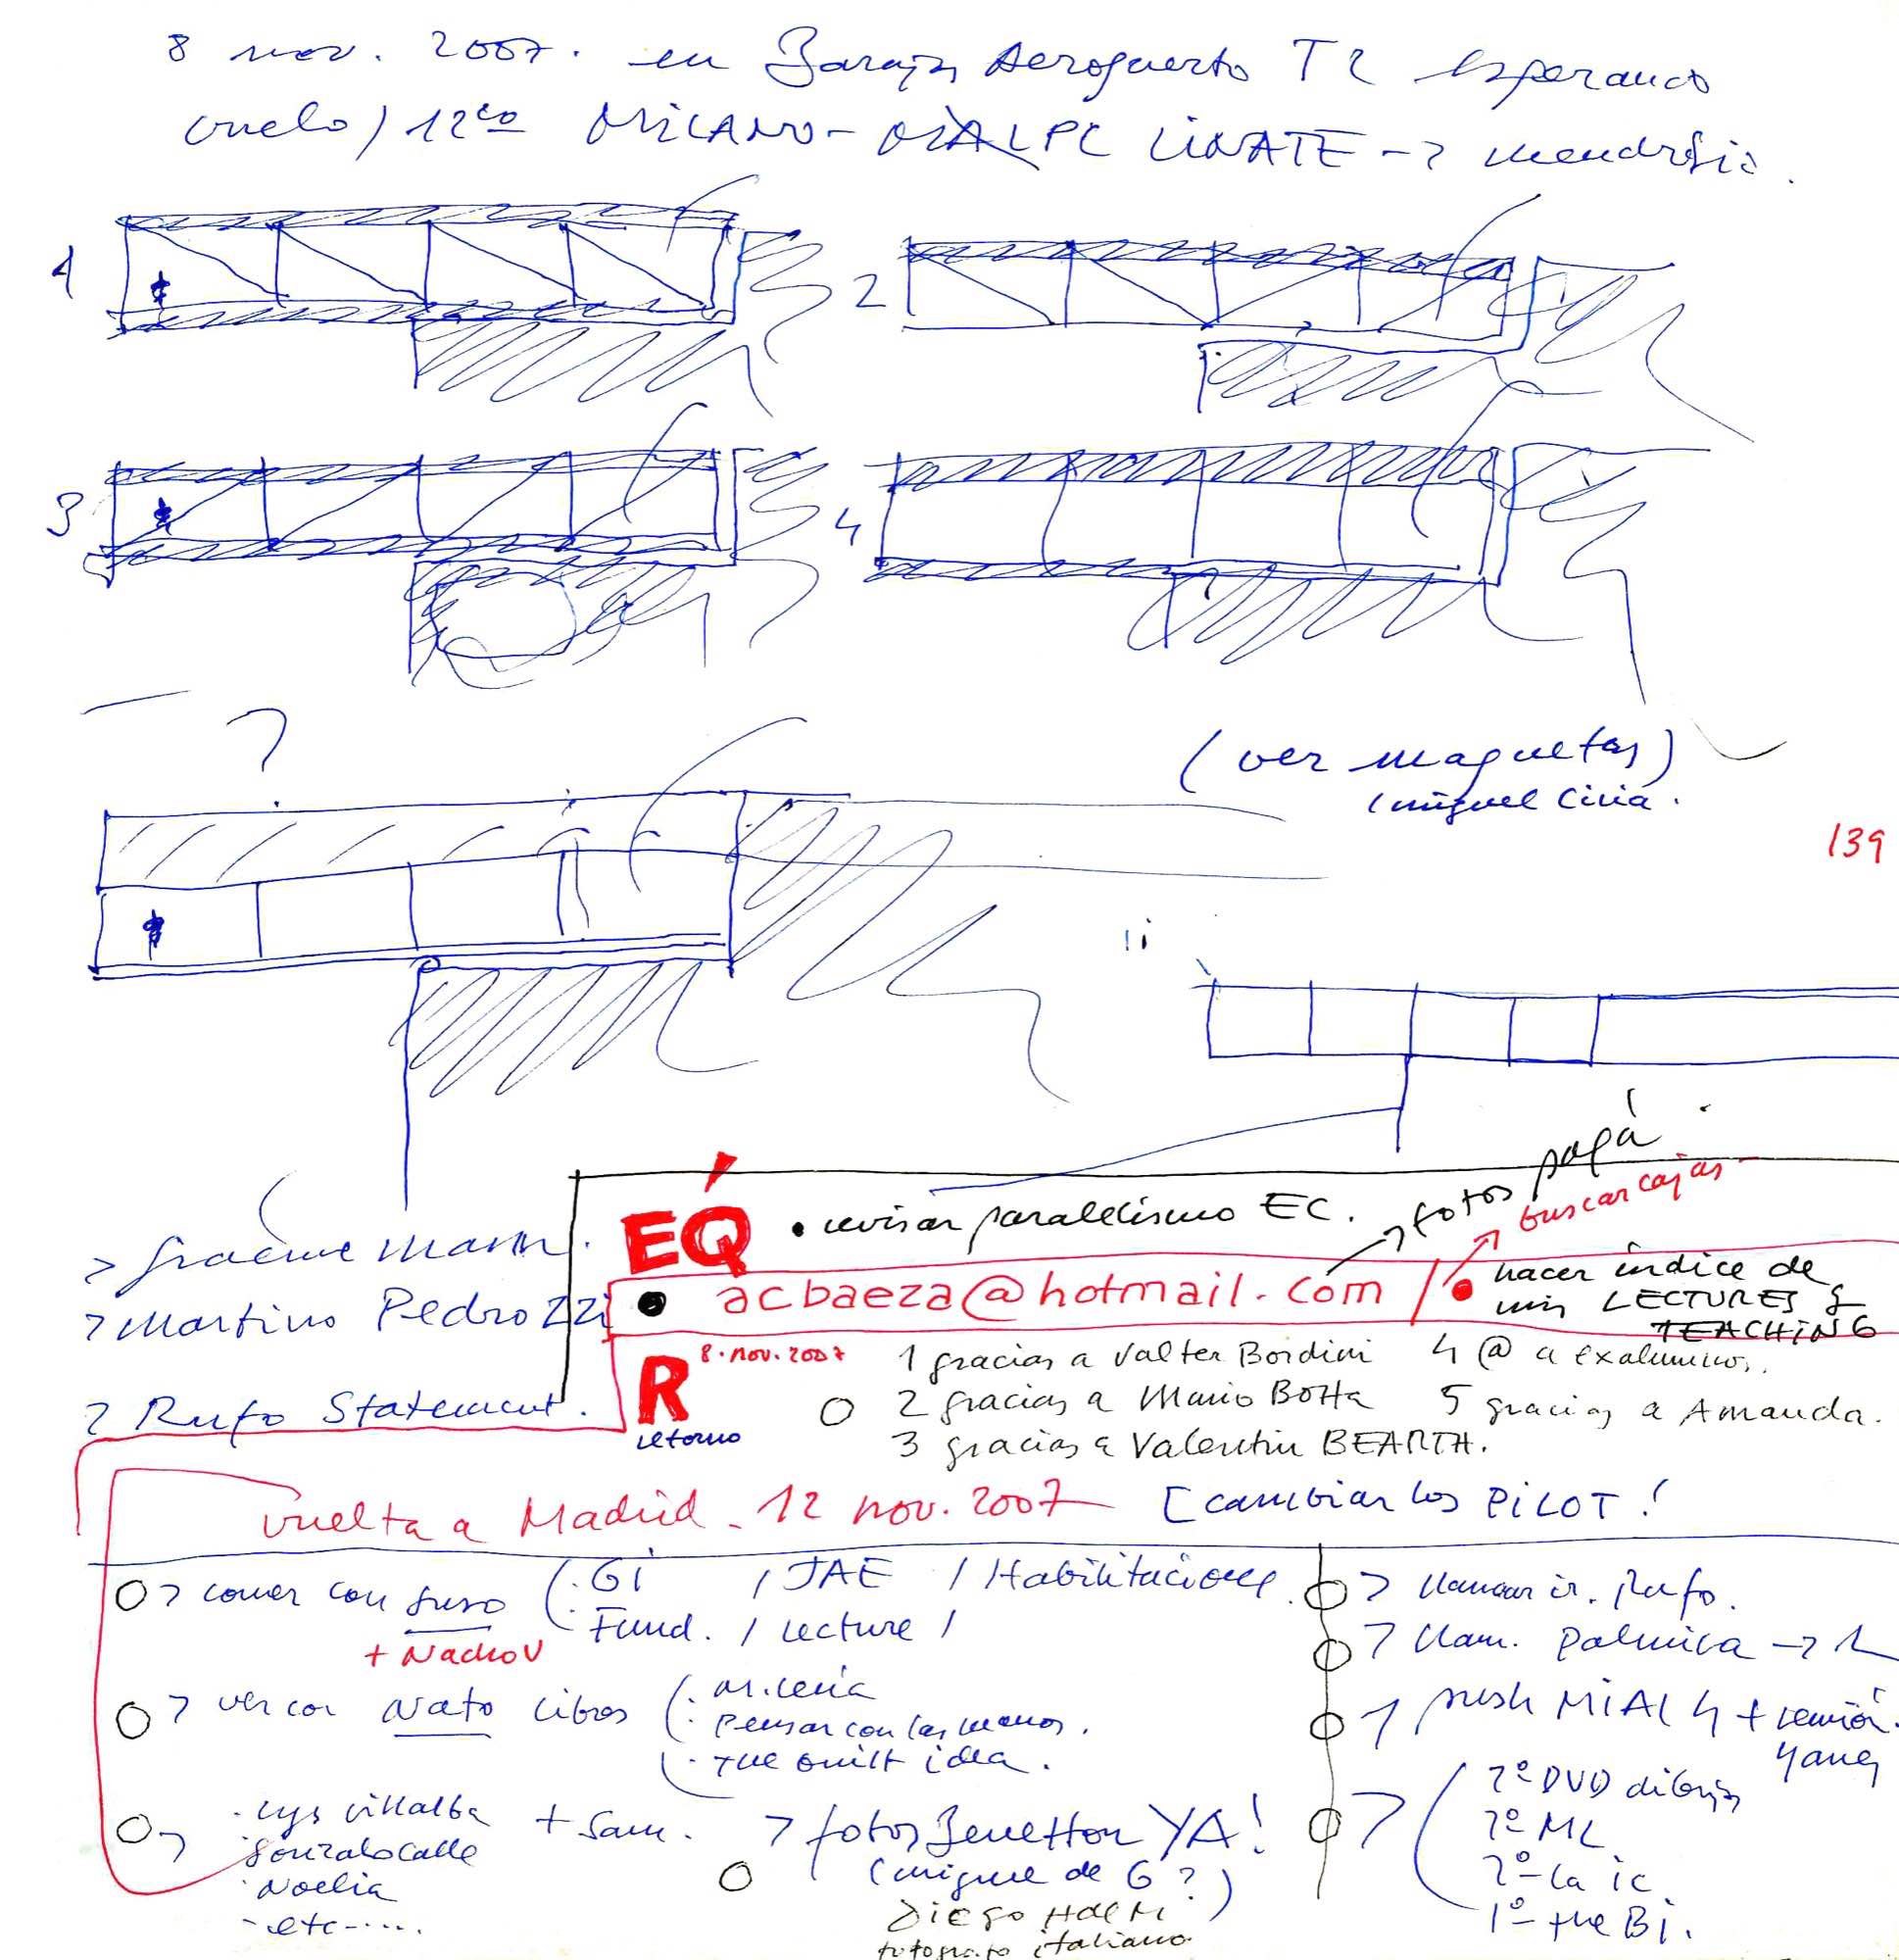 8 nov. 2007. en Barajas Aeropuerto T2 esperando
vuelo / 12 MILANO - LINATE -> mendrisio.
1
2
3
4
?
(ver maquetas)
(miguel Ciria.
139
> Graeme Mann.
> Martino Pedrozzi
> Rufo Statement.
EQ
• revisar paralelismo EC.
fotos papá
buscar cajas
• acbaeza@hotmail.com /
• hacer índice de
mis LECTURES &
TEACHING
R 8. nov. 2007
retorno
1 gracias a Valter Bordini
2 gracias a Mario Botta
3 gracias a Valentin BEARTH.
4 @ a exalumnos.
5 gracias a Amanda.
vuelta a Madrid - 12 nov. 2007
[cambiar los PILOT!
> comer con Suso
+ Nacho V
(. GI / JAE / Habilitaciones.
. Fund. / Lecture /
> ver con Nato libros
. Pensar con las manos.
. THE built idea.
>
. Lys Villalba
. Gonzalo Calle
. Noelia
- etc.....
+ Sam.
> fotos Benetton YA!
(miguel de G?)
Diego
fotografo italiano
> llamar ir. Rufo.
> llam. Palmira ->
MIAC 4 + reunión.
Yanes
>
2º DVD dibujos
2º ML
2º la ic
1º the Bi.